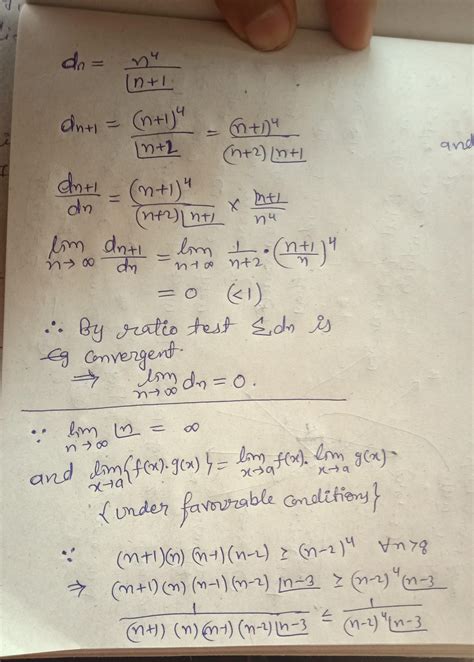 dn = n⁴ / ⌊n+1
dn+1 = (n+1)⁴ / ⌊n+2 = (n+1)⁴ / (n+2)⌊n+1
and
dn+1 / dn = (n+1)⁴ / (n+2)⌊n+1 × ⌊n+1 / n⁴
lim n→∞ dn+1 / dn = lim n→∞ 1/(n+2) · ((n+1)/n)⁴
= 0 (<1)
∴ By ratio test Σdn is
convergent.
⇒ lim n→∞ dn = 0.
∵ lim n→∞ ⌊n = ∞
and lim x→a {f(x)·g(x)} = lim x→a f(x). lim x→a g(x).
{under favourable conditions}
∵ (n+1)(n)(n-1)(n-2) ≥ (n-2)⁴ ∀n>8
⇒ (n+1)(n)(n-1)(n-2)⌊n-3 ≥ (n-2)⁴⌊n-3
1 / (n+1)(n)(n-1)(n-2)⌊n-3 ≤ 1 / (n-2)⁴⌊n-3